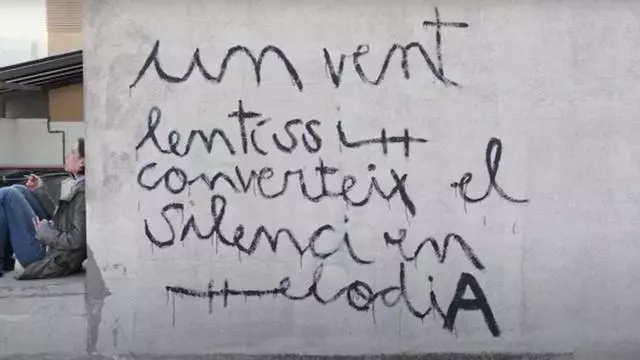 un vent
lentíssim
converteix el
silenci en
melodiA